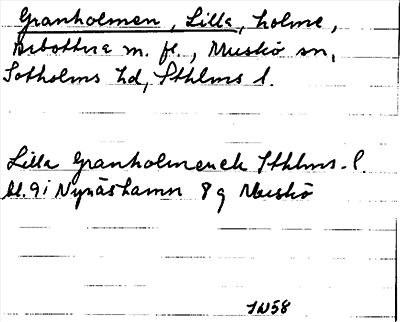 Granholmen, Lilla, holme,
m. fl., Muskö sn,
Sotholms hd, Sthlms l.
Lilla Granholmen ek Sthlms l.
bl. 9 i Nynäshamn 8 g Muskö
JW58